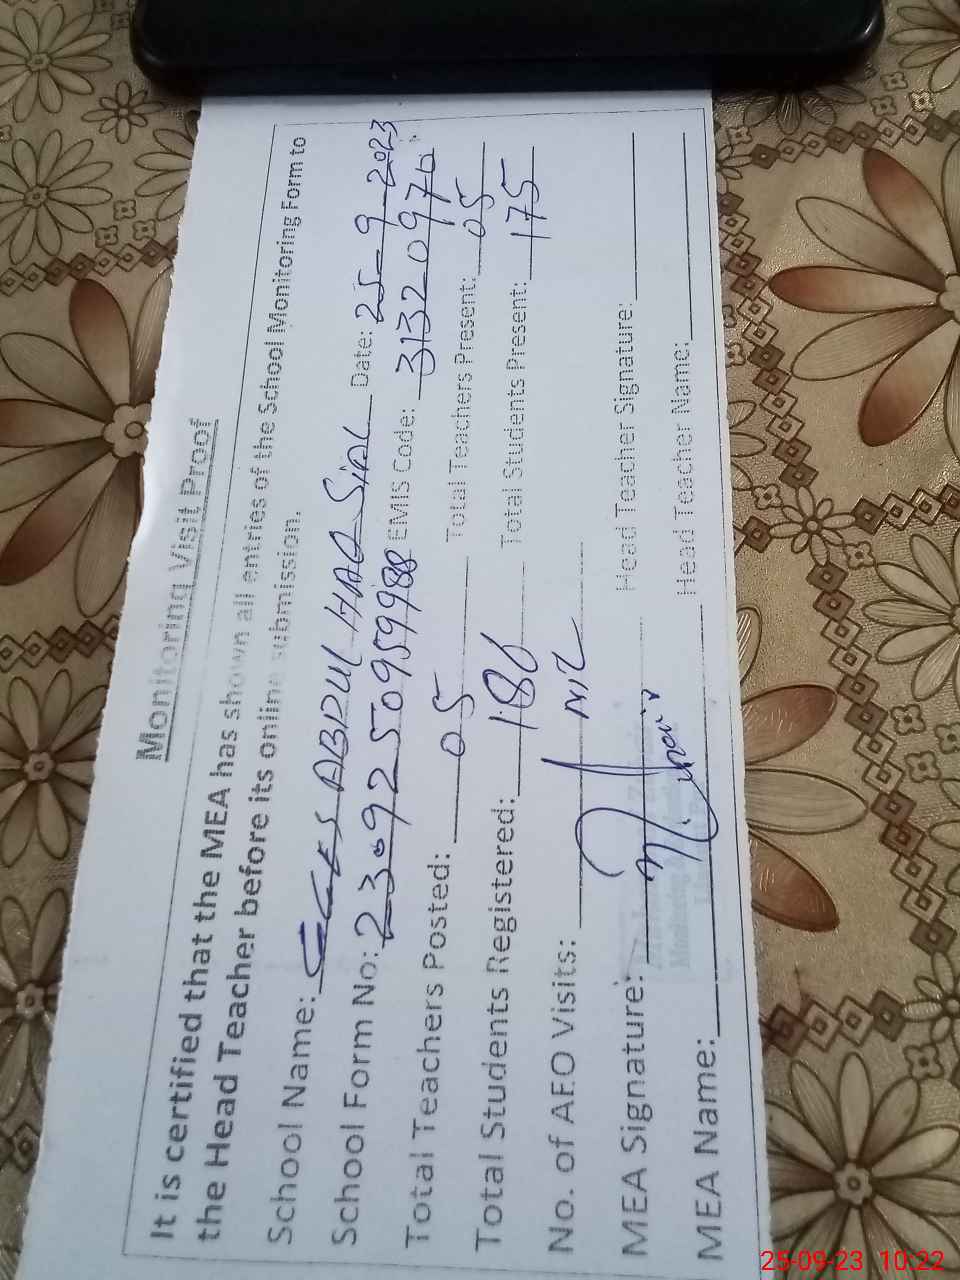 Monitoring Visit Proof
It is certified that the MEA has shown all entries of the School Monitoring Form to
the Head Teacher before its online submission.
School Name: ABDUL HAQ SiAL Date: 25-9-2023
School Form No: 2309250959988 EMIS Code: 31320970
Total Teachers Posted: 05 Total Teachers Present: 05
Total Students Registered: 186 Total Students Present: 175
No. of AEO Visits: NiL
MEA Signature: Head Teacher Signature:
MEA Name: Head Teacher Name:
25-09-23 10:22